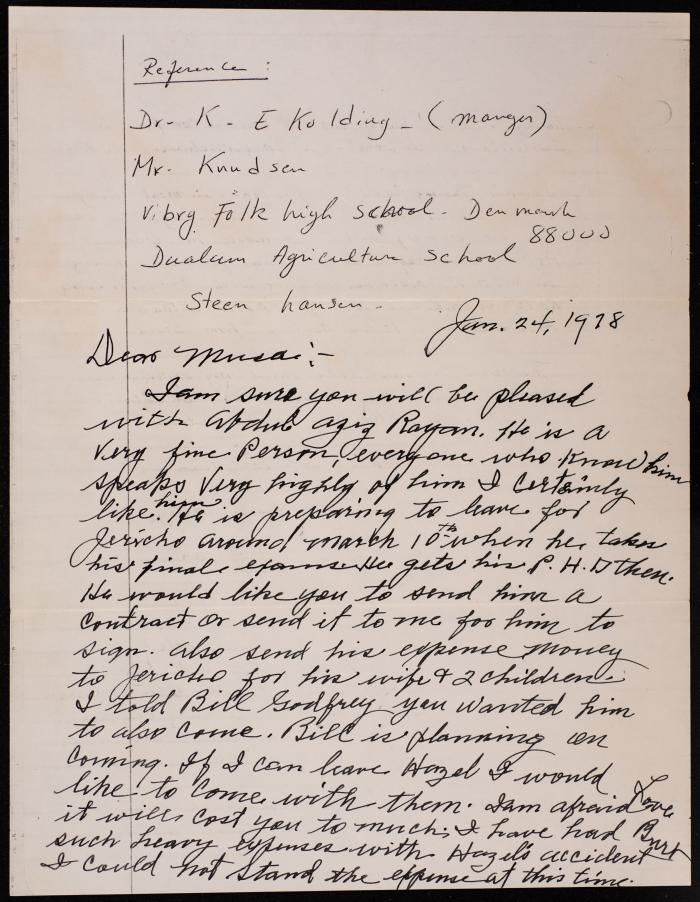 Reference :
Dr- K - E Kolding - (manger)
Mr. Knudsen
Vibrg Folk high school - Denmark
88000
Dualum Agriculture school
Steen hansen -
Jan. 24, 1978
Dear Musa:-
I am sure you will be pleased
with Abdul Aziz Rayan. He is a
Very fine Person, everyone who know him
speaks Very highly of him I certainly
like him. He is preparing to leave for
Jericho around March 10th when he takes
his final exams. He gets his P. H. D then.
He would like you to send him a
contract or send it to me for him to
sign. Also send his expense money
to Jericho for his wife & 2 children.
I told Bill Godfrey you wanted him
to also come. Bill is planning on
coming. If I can leave Hazel I would
like to come with them. I am afraid
it will cost you to much. I have had
such heavy expenses with Hazel's accident
I could not stand the expense at this time.
Love
Burt